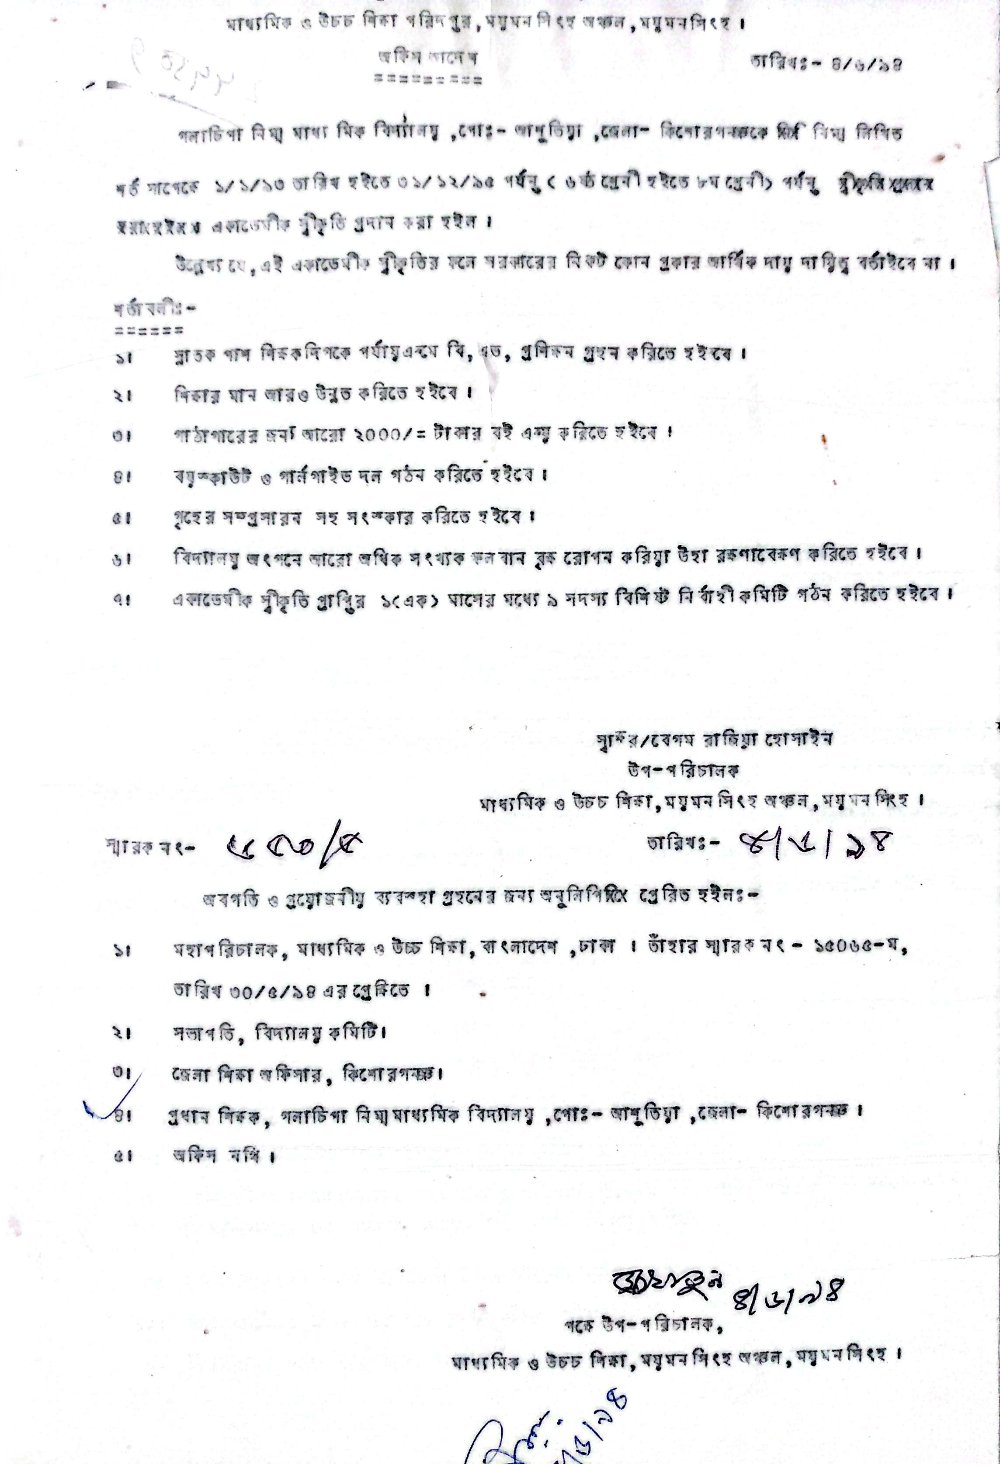 মাধ্যমিক ও উচ্চ শিক্ষা পরিদপ্তর, ময়মনসিংহ অঞ্চল, ময়মনসিংহ।
অফিস আদেশ
তারিখঃ- ৪/৬/৯৪
গলাচিপা নিম্ন মাধ্যমিক বিদ্যালয়, পোঃ- আশুতিয়া, জেলা- কিশোরগনজকে নিম্ন লিখিত
শর্ত সাপেক্ষে ১/১/৯৩ তারিখ হইতে ৩১/১২/৯৫ পর্যন্ত ( ৬ষ্ঠ শ্রেনী হইতে ৮ম শ্রেনী) পর্যন্ত
একাডেমীক স্বীকৃতি প্রদান করা হইল।
উল্লেখ্য যে, এই একাডেমীক স্বীকৃতির ফলে সরকারের নিকট কোন প্রকার আর্থিক দায় দায়িত্ব বর্তাইবে না।
শর্তাবলীঃ-
১। স্নাতক পাশ শিক্ষকদিগকে পর্যায়ক্রমে বি, এড, প্রশিক্ষন গ্রহন করিতে হইবে।
২। শিক্ষার মান আরও উন্নত করিতে হইবে।
৩। পাঠাগারের জন্য আরো ২০০০/= টাকার বই ক্রয় করিতে হইবে।
৪। বয়স্কাউট ও গার্লগাইড দল গঠন করিতে হইবে।
৫। গৃহের সম্প্রসারন সহ সংস্কার করিতে হইবে।
৬। বিদ্যালয় অংগনে আরো অধিক সংখ্যক ফলবান বৃক্ষ রোপন করিয়া উহা রক্ষণাবেক্ষণ করিতে হইবে।
৭। একাডেমীক স্বীকৃতি প্রাপ্তির ১(এক) মাসের মধ্যে ৯ সদস্য বিশিষ্ট নির্বাহী কমিটি গঠন করিতে হইবে।
স্বাক্ষর/বেগম রাজিয়া হোসাইন
উপ-পরিচালক
মাধ্যমিক ও উচ্চ শিক্ষা, ময়মনসিংহ অঞ্চল, ময়মনসিংহ।
স্মারক নং- ৫৫৩/৫ তারিখঃ- ৪/৬/৯৪
অবগতি ও প্রয়োজনীয় ব্যবস্হা গ্রহনের জন্য অনুলিপি প্রেরিত হইলঃ-
১। মহাপরিচালক, মাধ্যমিক ও উচ্চ শিক্ষা, বাংলাদেশ, ঢাকা। তাঁহার স্মারক নং - ১৫০৬৫-ম,
তারিখ ৩০/৫/৯৪ এর প্রেক্ষিতে।
২। সভাপতি, বিদ্যালয় কমিটি।
৩। জেলা শিক্ষা অফিসার, কিশোরগনজ।
৪। প্রধান শিক্ষক, গলাচিপা নিম্ন মাধ্যমিক বিদ্যালয়, পোঃ- আশুতিয়া, জেলা- কিশোরগনজ।
৫। অফিস নথি।
৪/৬/৯৪
পক্ষে উপ-পরিচালক,
মাধ্যমিক ও উচ্চ শিক্ষা, ময়মনসিংহ অঞ্চল, ময়মনসিংহ।